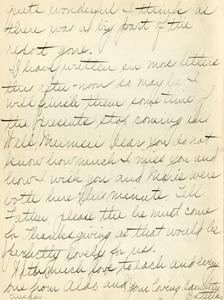 quite wonderful I think as
there was a big part of the
report gone.
I have written six more letters
this after-noon so maybe I
will finish them sometime if
the presents stop coming in.
Well Mumsie dear you do not
know how much I miss you and
how I wish you and Marie were
both here this minute. Tell
Father please that he must come
for Thanksgiving as that would be
perfectly lovely for us.
With much love to each and every
one from Aldo and your loving daughter
Tuesday